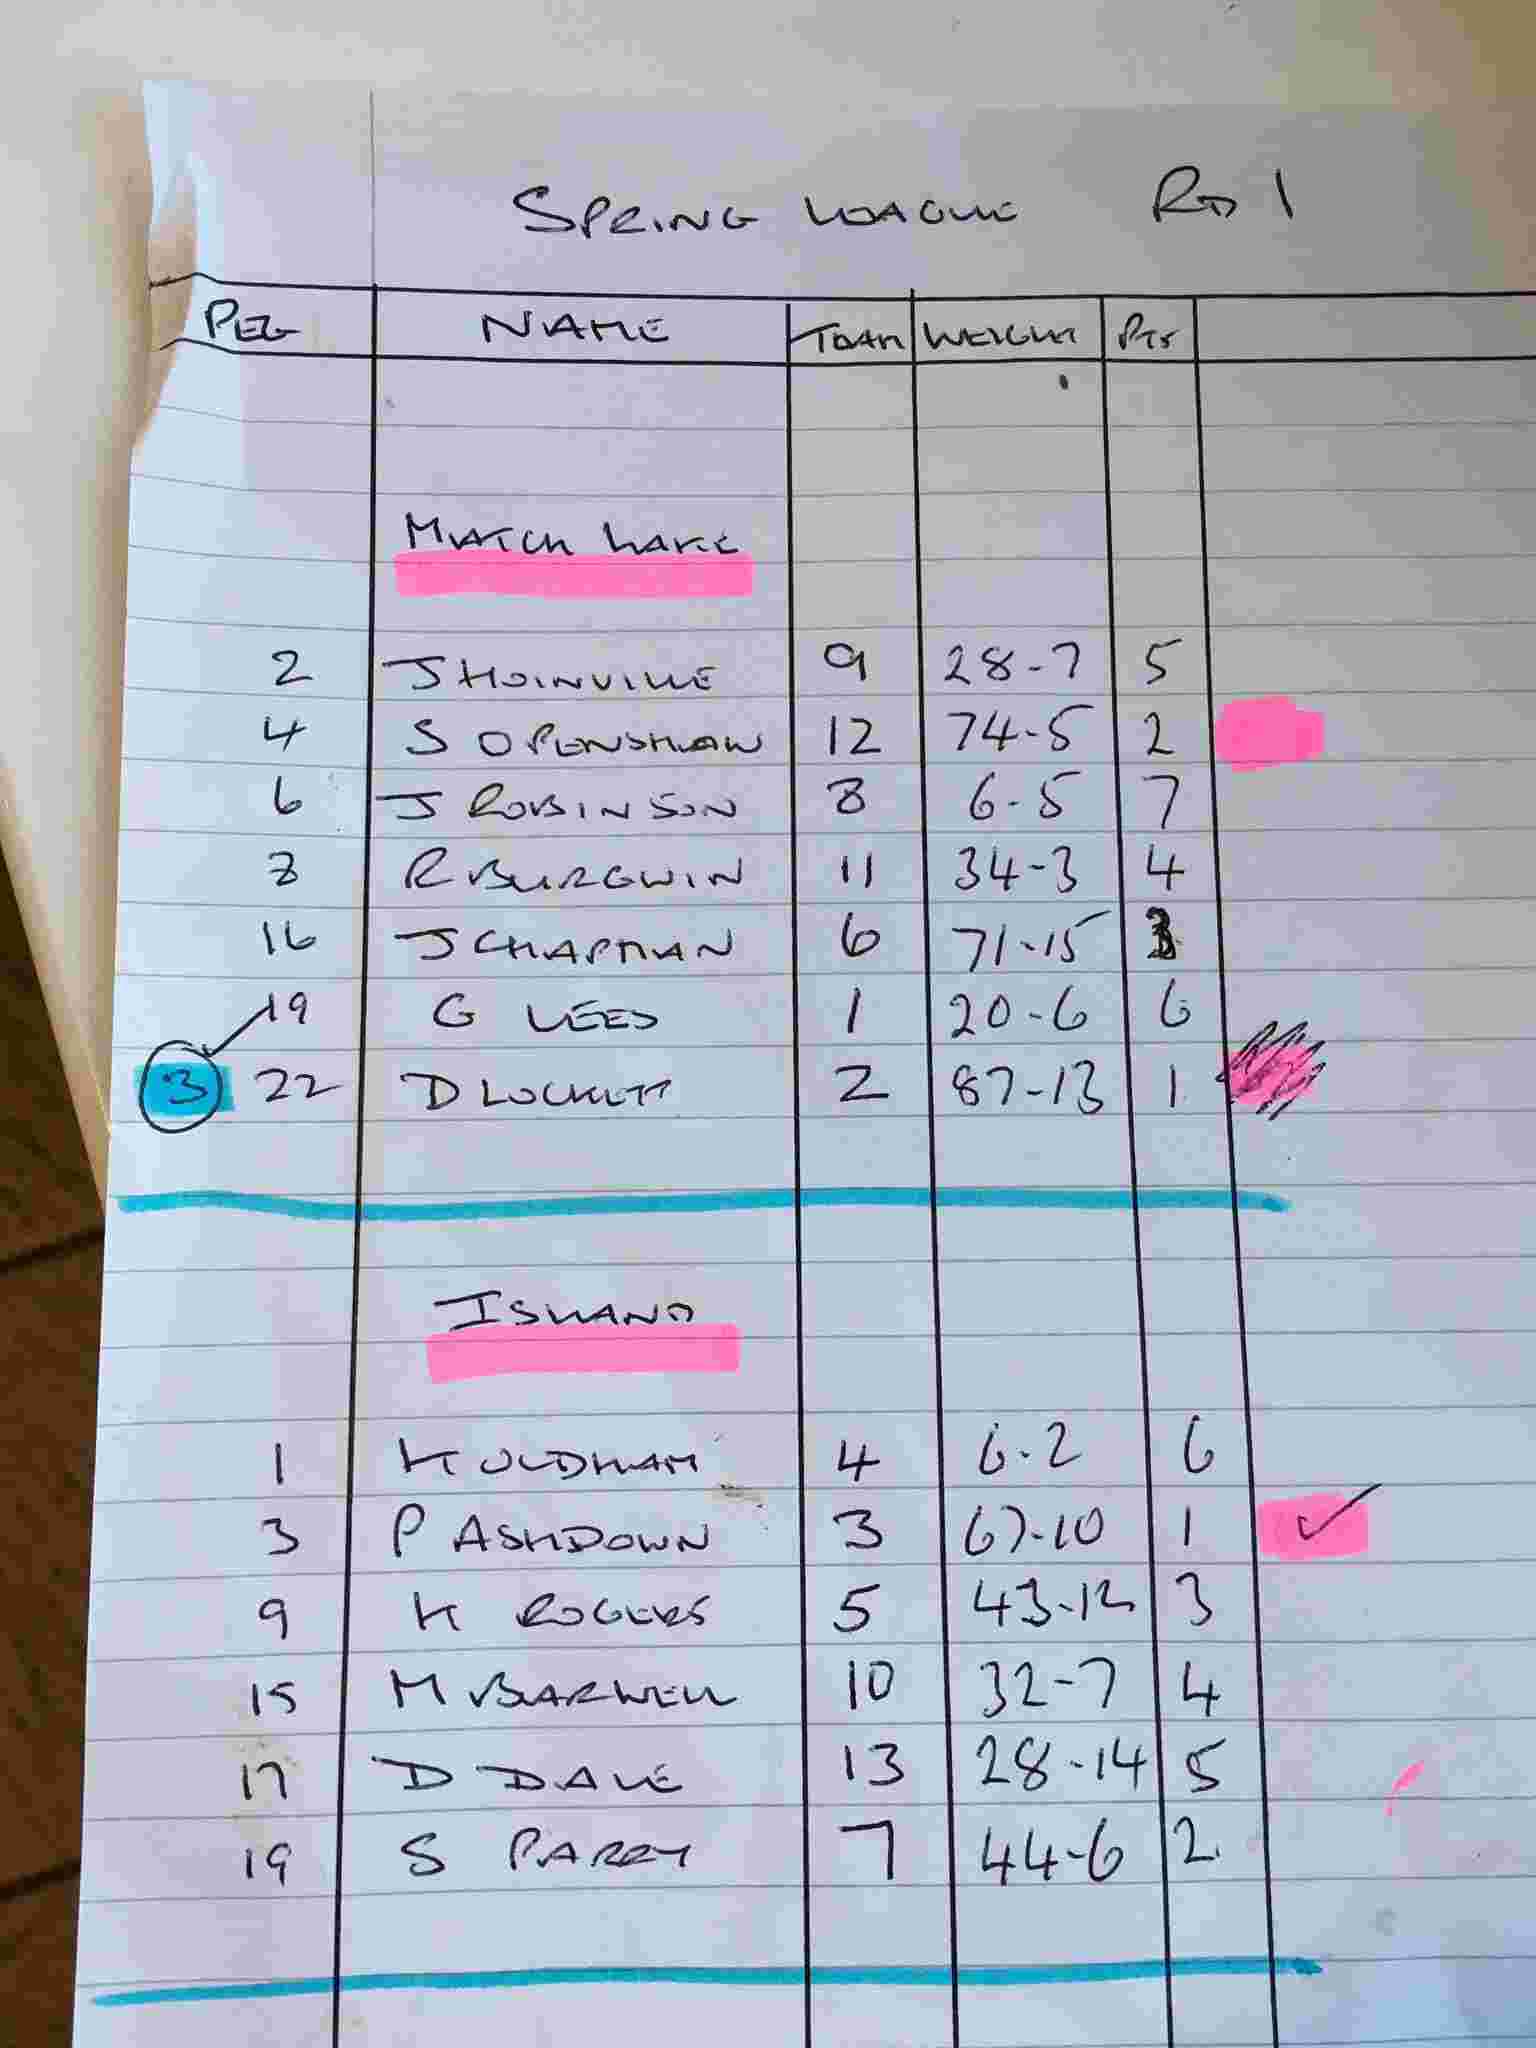 SPRING LEAGUE RD 1
PEG NAME TEAM WEIGHT PTS
MATCH LAKE
2 J HOINVILLE 9 28-7 5
4 S OPENSHAW 12 74-5 2
6 J ROBINSON 8 6-5 7
8 R BURGWIN 11 34-3 4
16 J CHAPMAN 6 71-15 3
19 G LEES 1 20-6 6
3 22 D LOCKETT 2 87-13 1
ISLAND
1 K OLDHAM 4 6-2 6
3 P ASHDOWN 3 67-10 1
9 K ROGERS 5 43-12 3
15 M BARWELL 10 32-7 4
17 D DALE 13 28-14 5
19 S PARRY 7 44-6 2